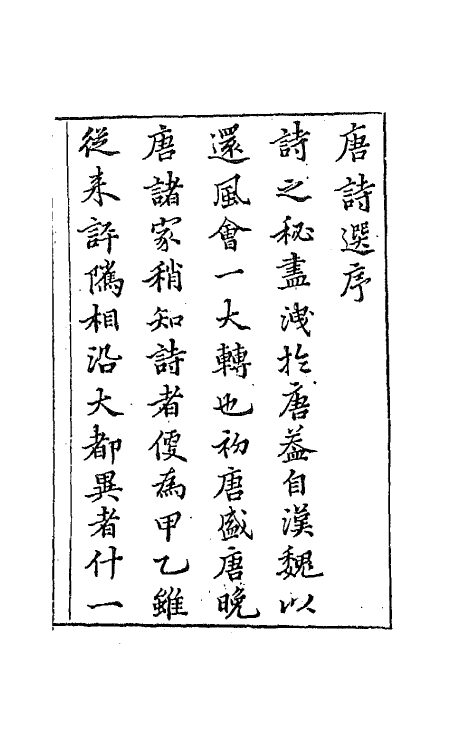 唐詩選序
詩之秘盡洩扵唐葢自漢魏以
還風會一大轉也初唐盛唐晚
唐諸家稍知詩者便為甲乙雖
從来評隲相沿大都異者什一